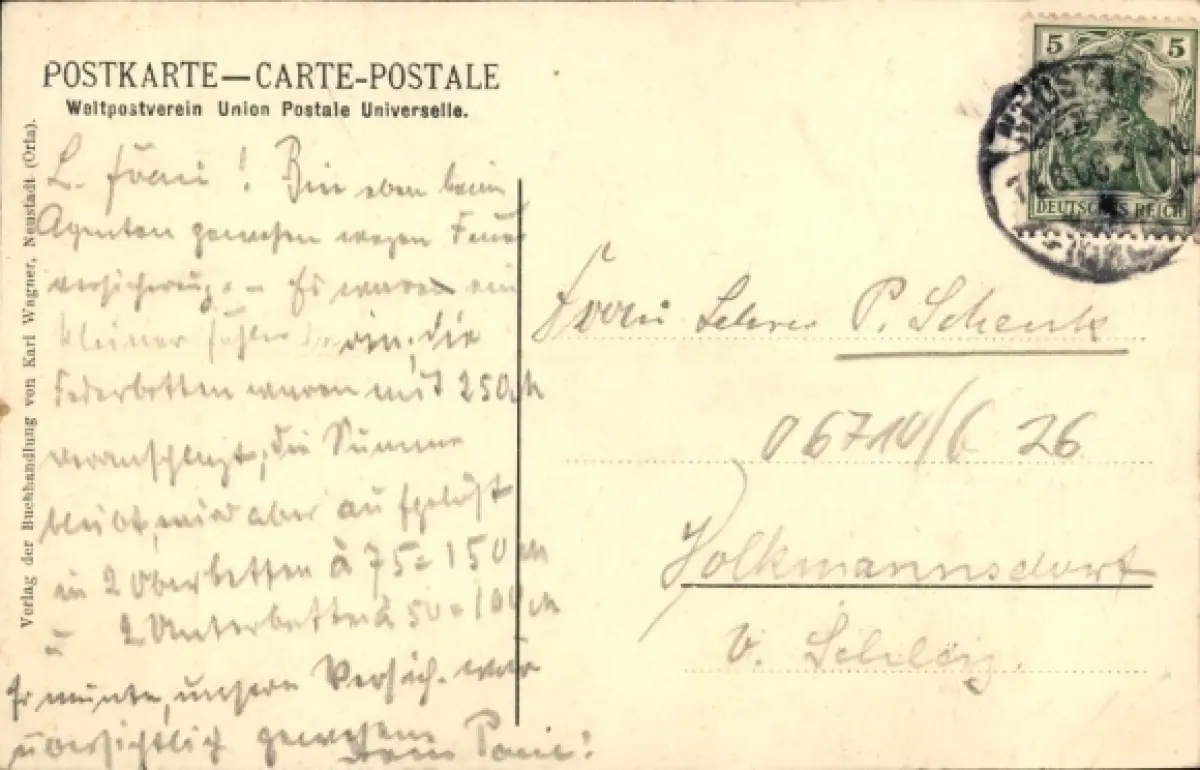 POSTKARTE—CARTE-POSTALE
Weltpostverein Union Postale Universelle.
Verlag der Buchhandlung von Karl Wagner, Neustadt (Orla).
5 5
DEUTSCHES REICH
L. Frau! Bin eben beim
Agenten gewesen wegen Feuer
versicherung. – Es waren ein
kleiner Fehler drin, die
Federbetten waren mit 250 M
veranschlagt; die Summe
bleibt, wird aber aufgelöst
in 2 Oberbetten à 75 = 150 M
u 2 Unterbetten à 50 = 100 M
Er meinte, unsere Versich. wär
übersichtlich gewesen
Dein Paul!
Frau Lehrer P. Schenk
06710/6 26
Volkmannsdorf
b. Schleiz.